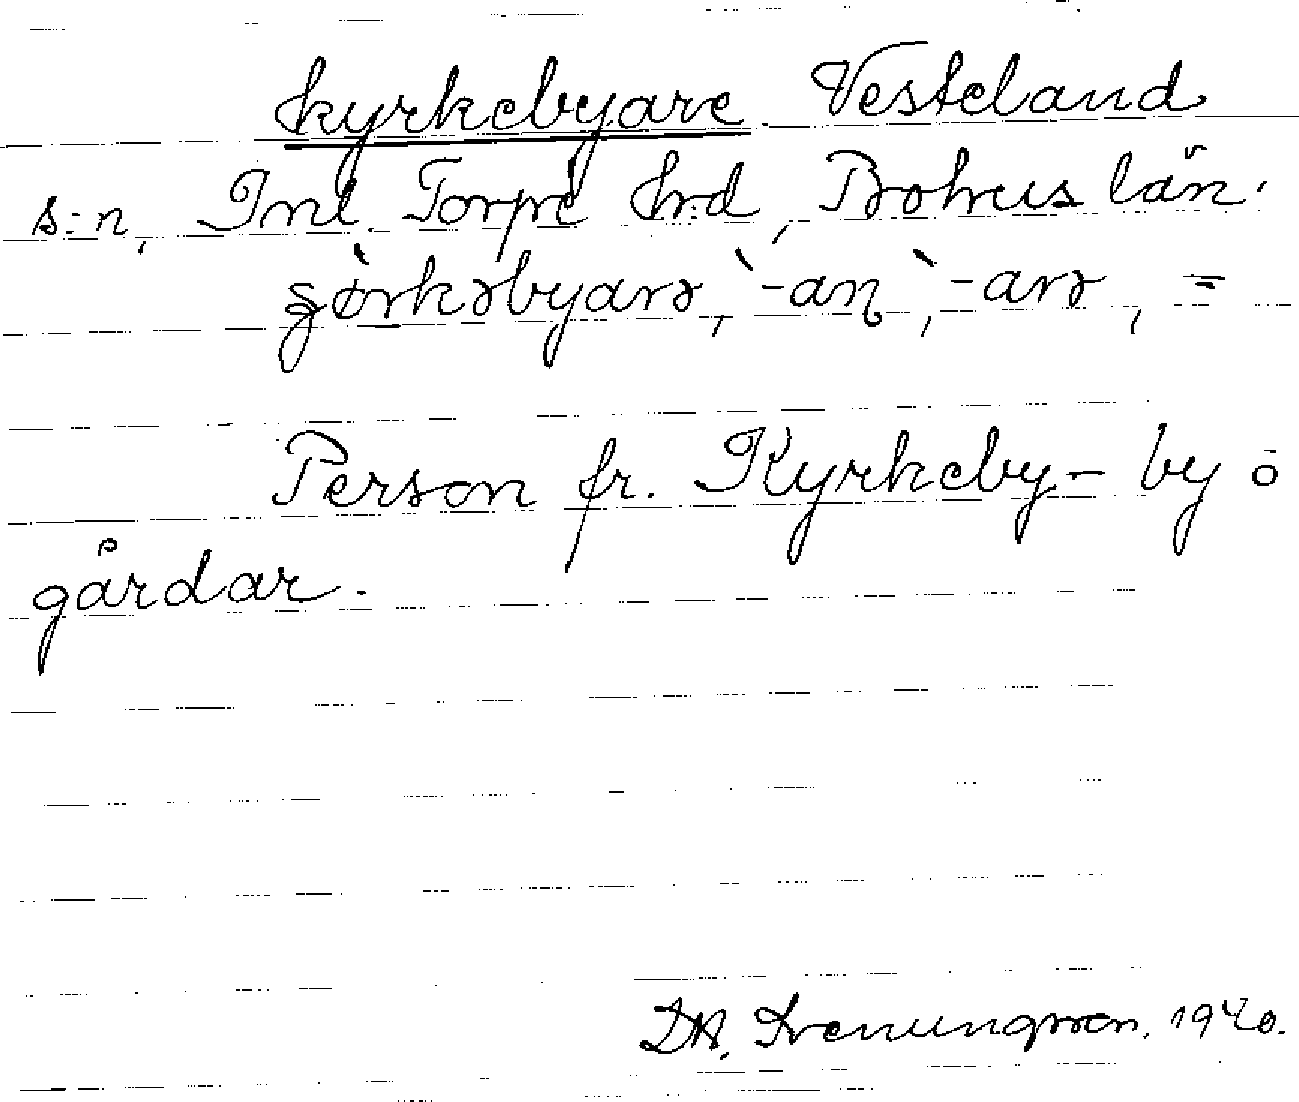 kyrkebyare Vesteland
s:n, Inl. Torpe hrd, Bohus län.
ʒɵ̀rkəbyarə, `-aɳ, `-arə, =
Person fr. Kyrkeby- by o
gårdar.
1940.